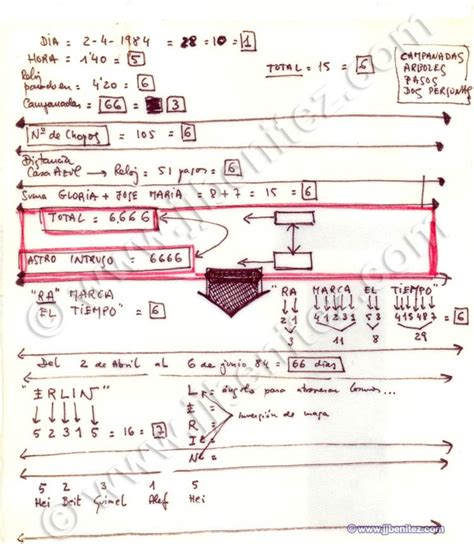 DIA = 2-4-1984 = 28 = 10 = 1
HORA = 1'40 = 5
Reloj parado en = 4'20 = 6
TOTAL = 15 = 6
CAMPANADAS
ARBOLES
PASOS
DOS PERSONAS
Campanadas = 66 = 3
Nº de Chopos = 105 = 6
Distancia
Casa Azul → Reloj = 51 pasos = 6
Suma GLORIA + JOSE MARIA = 8 + 7 = 15 = 6
TOTAL = 6,666
ASTRO INTRUSO = 6666
"RA" MARCA
EL TIEMPO" = 6
"RA MARCA EL TIEMPO"
2 1 41231 53 415487 = 6
3 11 8 29
Del 2 de Abril al 6 de junio 84 = 66 dias
"ERLIN"
5 2 3 1 5 = 16 = 7
L
E
R
I
N
para atravesar
inversión de
5 2 3 1 5
Hei Beit Guimel Alef Hei
© www.jjbenitez.com
© www.jjbenitez.com